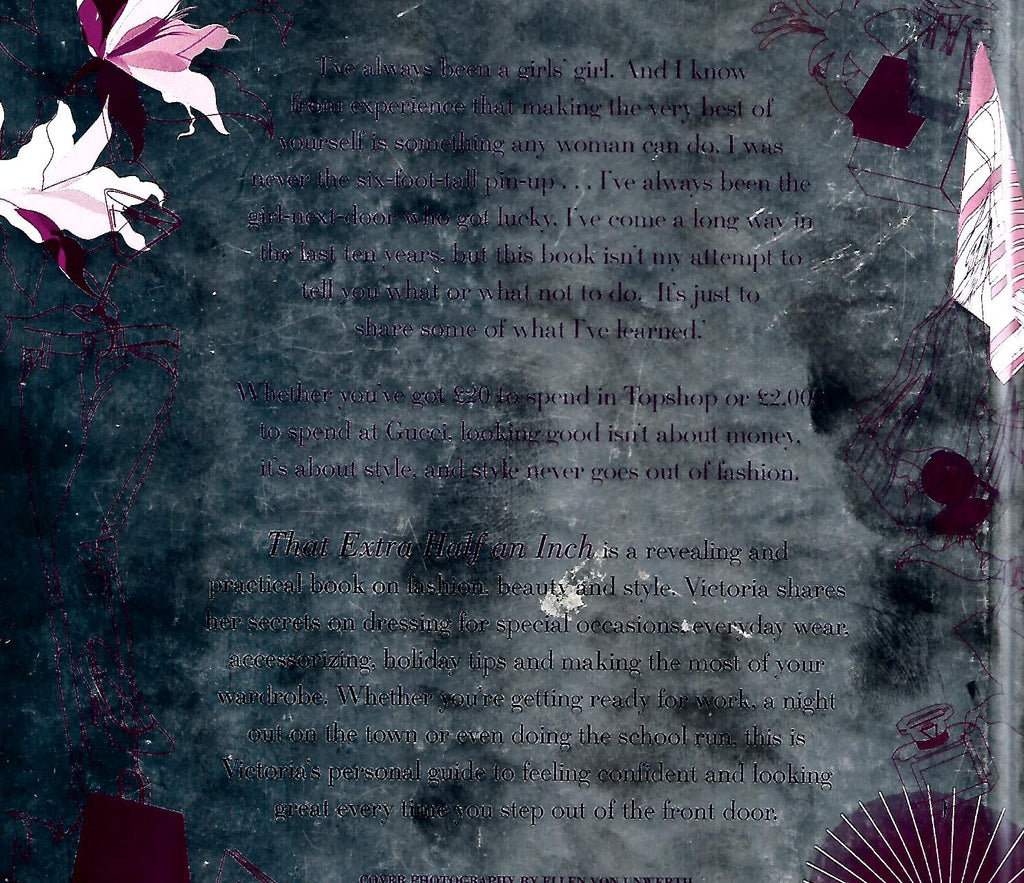 'I've always been a girls' girl. And I know
from experience that making the very best of
yourself is something any woman can do. I was
never the six-foot-tall pin-up . . . I've always been the
girl-next-door who got lucky. I've come a long way in
the last ten years, but this book isn't my attempt to
tell you what or what not to do. It's just to
share some of what I've learned.'
Whether you've got £20 to spend in Topshop or £2,00
to spend at Gucci, looking good isn't about money,
it's about style, and style never goes out of fashion.
That Extra Half an Inch is a revealing and
practical book on fashion, beauty and style. Victoria shares
her secrets on dressing for special occasions, everyday wear,
accessorizing, holiday tips and making the most of your
wardrobe. Whether you're getting ready for work, a night
out on the town or even doing the school run, this is
Victoria's personal guide to feeling confident and looking
great every time you step out of the front door.
COVER PHOTOGRAPHY BY ELLEN VON UNWERTH